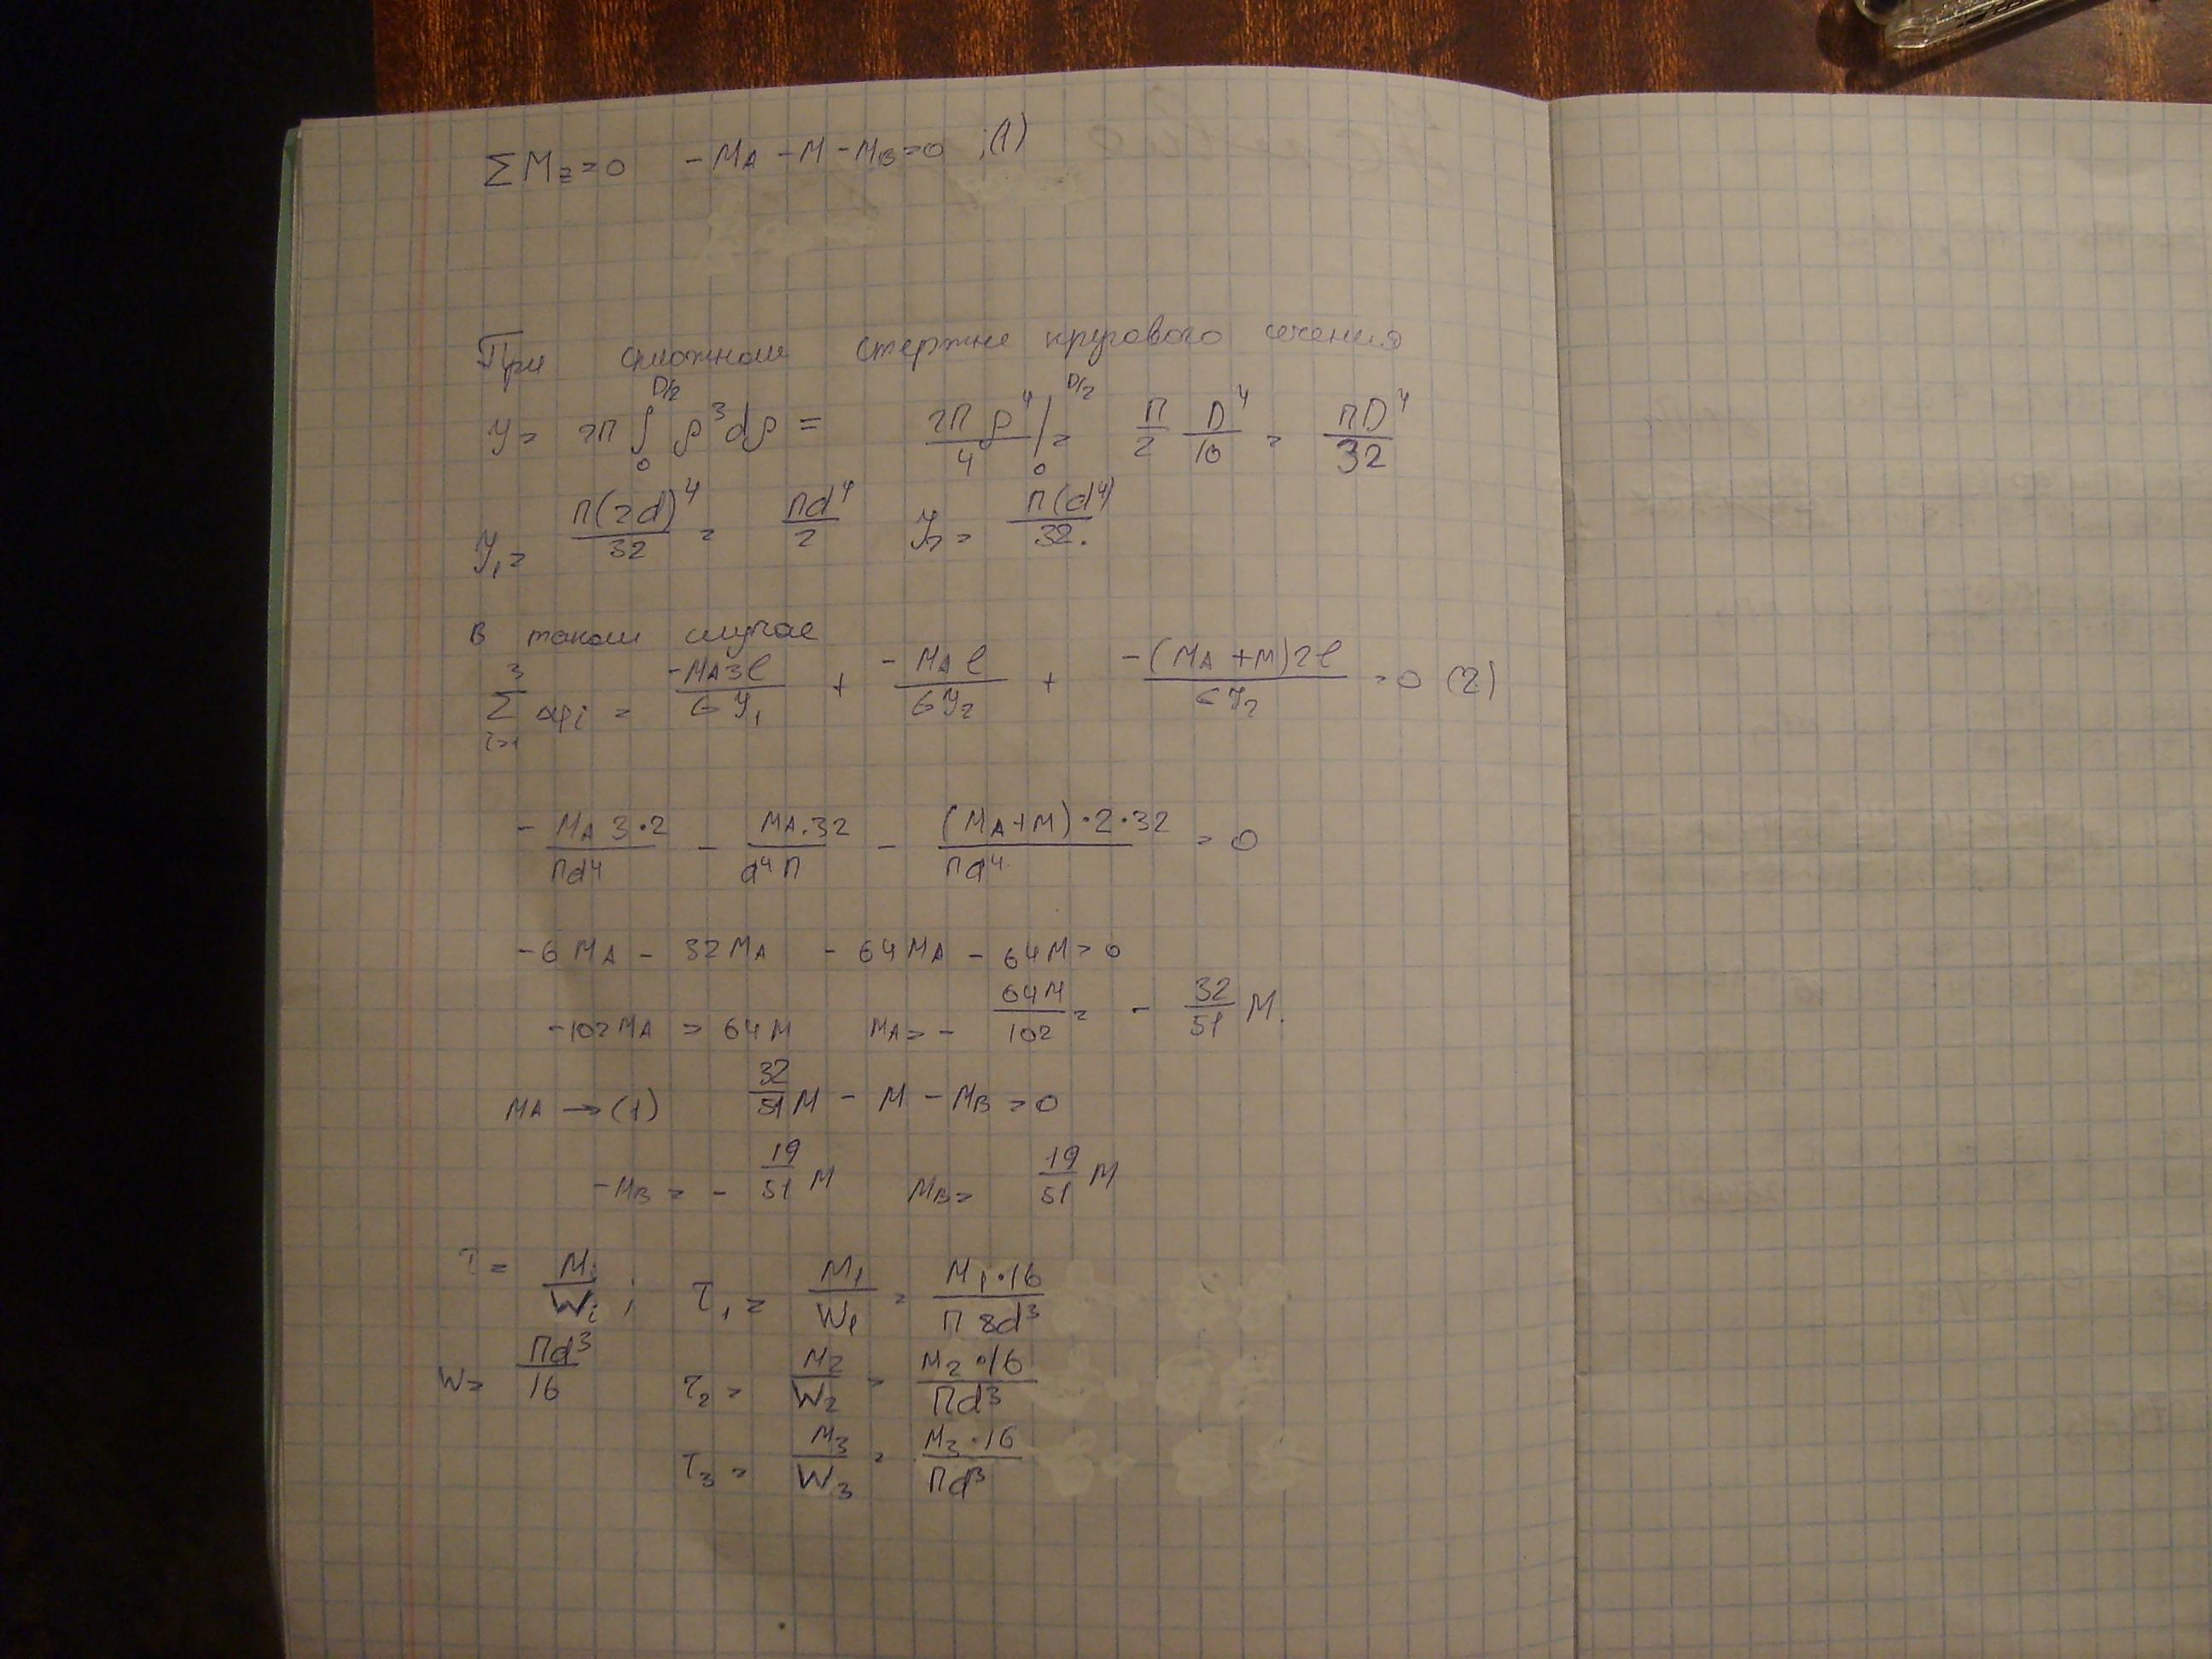 ΣMz=0 -MA -M -MB=0 ;(1)
При сплошном стержне кругового сечения
J= 2π ∫₀^{D/2} ρ³dρ = 2πρ⁴/4 |₀^{D/2} = π/2 D⁴/16 = πD⁴/32
J₁= π(2d)⁴/32 = πd⁴/2 J₂= π(d⁴)/32.
В таком случае
Σ_{i=1}^{3} φi = -MA3l/GJ₁ + -MAl/GJ₂ + -(MA+M)2l/GJ₂ =0 (2)
- MA 3·2/πd⁴ - MA·32/d⁴π - (MA+M)·2·32/πd⁴ =0
-6MA - 32MA - 64MA - 64M=0
-102MA = 64M MA= - 64M/102 = - 32/51 M.
MA →(1) 32/51 M - M - MB =0
-MB = - 19/51 M MB= 19/51 M
τ= Mi/Wi ; τ₁ = M₁/W₁ = M₁·16/π8d³
W= πd³/16 τ₂ = M₂/W₂ = M₂·16/πd³
τ₃ = M₃/W₃ = M₃·16/πd³